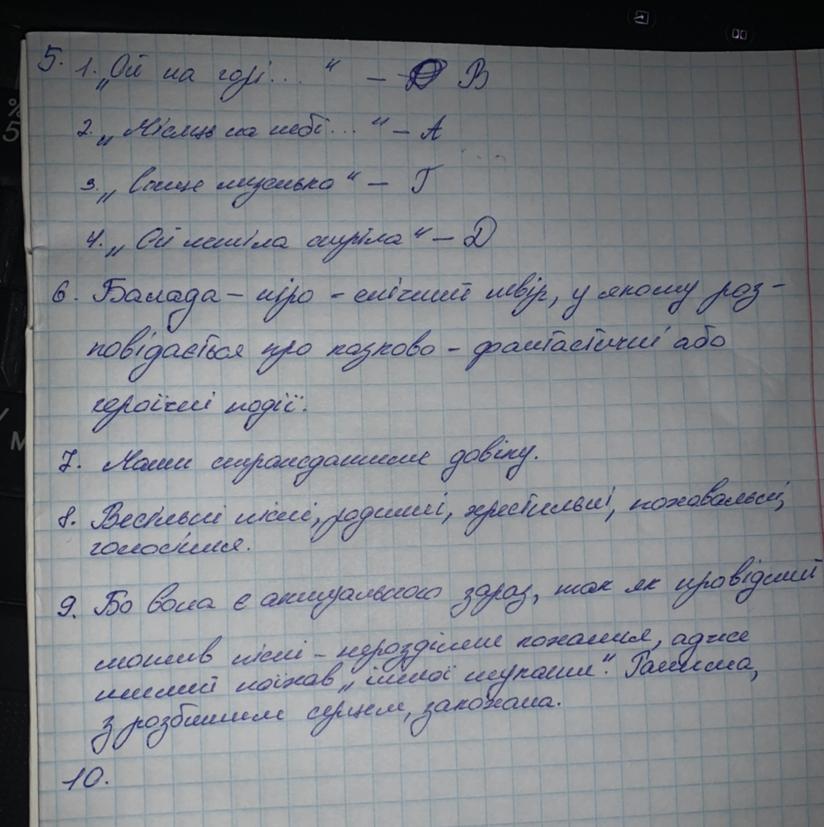 5. 1. „Ой на горі... “ – В
2. „Місяць на небі... “ – А
3. „Віще музенько“ – Г
4. „Ой летіла стріла“ – Д
6. Балада – ліро - епічний твір, у якому роз-
повідається про казково - фантастичні або
героїчні події.
7. Мати страждатиме довіку.
8. Весільні пісні, родинні, хрестильні, поховальні,
голосіння.
9. Бо вона є актуальною зараз, так як провідний
мотив пісні – нерозділене кохання, адже
милий поїхав „іншої шукати“. Галина,
з розбитим серцем, закохана.
10.
%
5
M